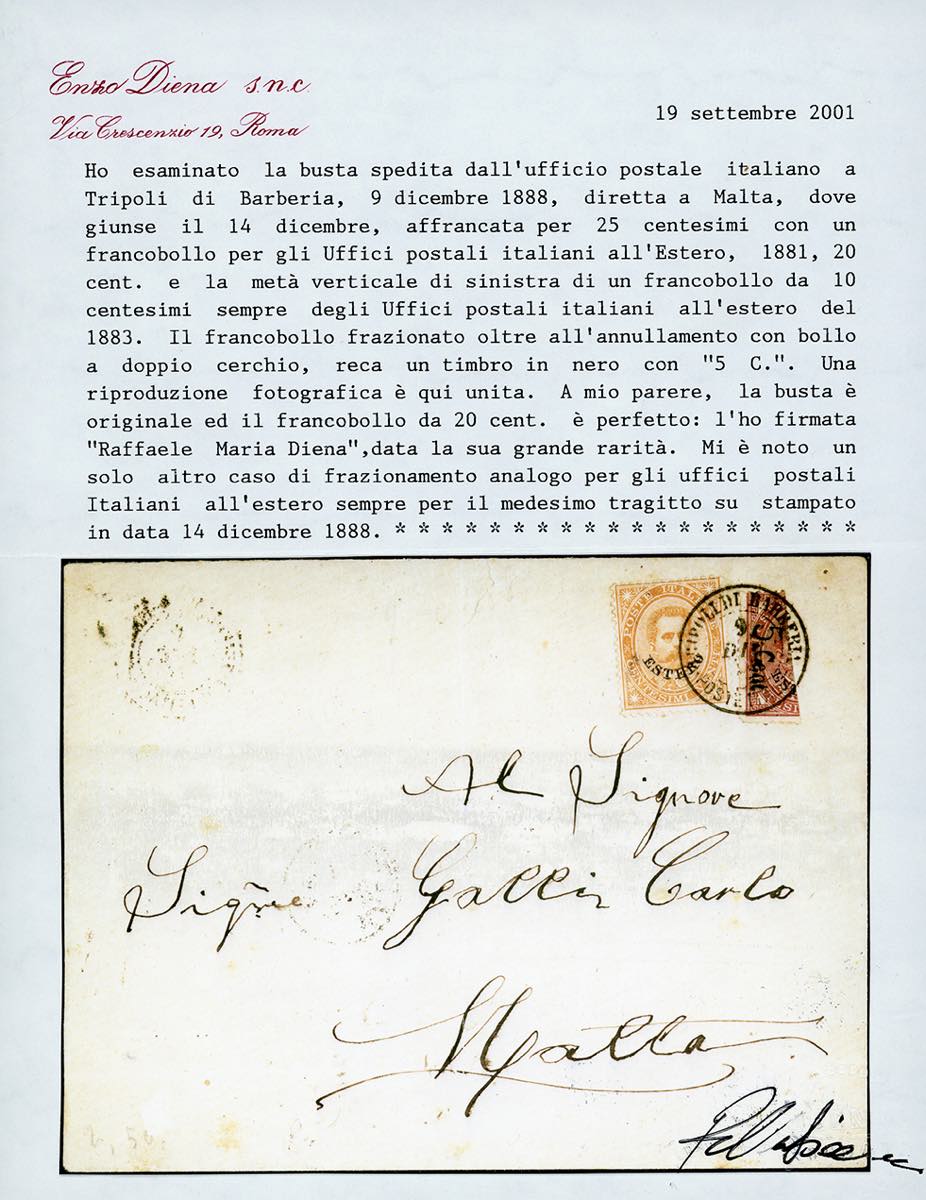 Enzo Diena s.n.c.
Via Crescenzio 19, Roma
19 settembre 2001
Ho esaminato la busta spedita dall'ufficio postale italiano a
Tripoli di Barberia, 9 dicembre 1888, diretta a Malta, dove
giunse il 14 dicembre, affrancata per 25 centesimi con un
francobollo per gli Uffici postali italiani all'Estero, 1881, 20
cent. e la metà verticale di sinistra di un francobollo da 10
centesimi sempre degli Uffici postali italiani all'estero del
1883. Il francobollo frazionato oltre all'annullamento con bollo
a doppio cerchio, reca un timbro in nero con "5 C.". Una
riproduzione fotografica è qui unita. A mio parere, la busta è
originale ed il francobollo da 20 cent. è perfetto: l'ho firmata
"Raffaele Maria Diena",data la sua grande rarità. Mi è noto un
solo altro caso di frazionamento analogo per gli uffici postali
Italiani all'estero sempre per il medesimo tragitto su stampato
in data 14 dicembre 1888. * * * * * * * * * * * * * * * * * * * * *
POSTE ITAL
ESTERO
CENTESIMI
TRIPOLI DI BARBERIA
9
POSTE
5 C
EST
Al Signore
Sigñre Galli Carlo
Malta